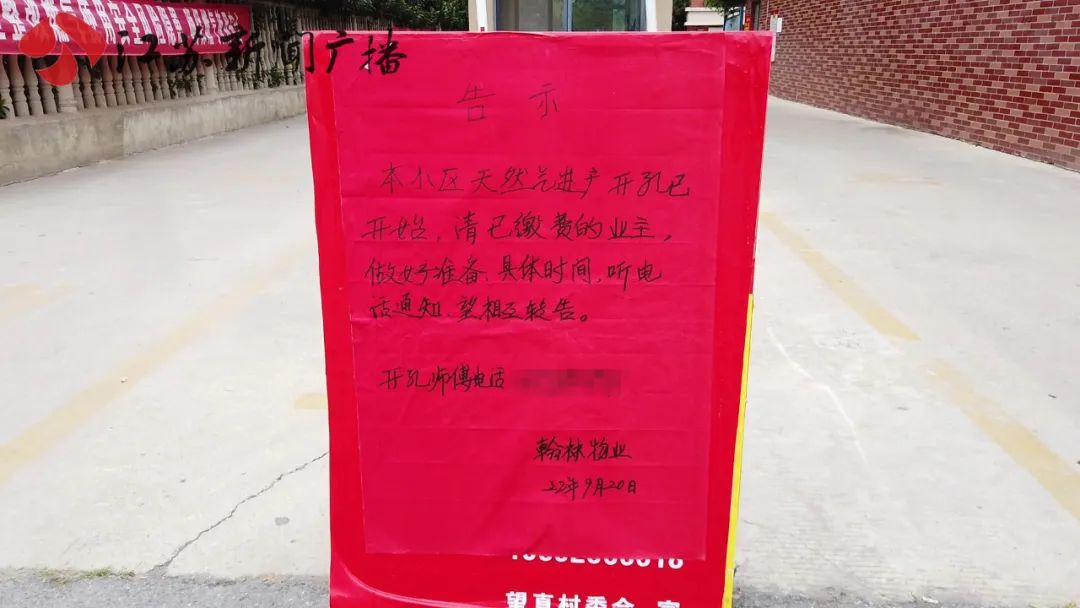 江苏新闻广播
告示
本小区天然气进户开孔已
开始，请已缴费的业主，
做好准备、具体时间，听电
话通知、望相互转告。
开孔师傅电话
翰林物业
22年9月20日
望直村委会